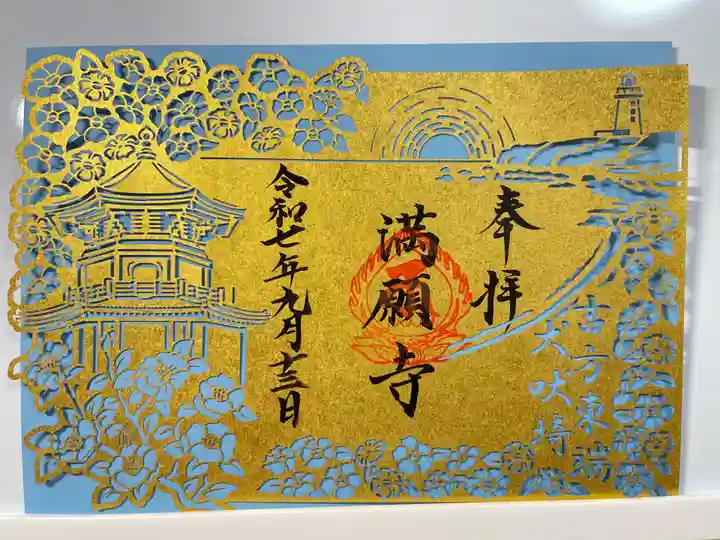 奉拝
満願寺
令和七年九月十三日
古方東端
犬吠埼